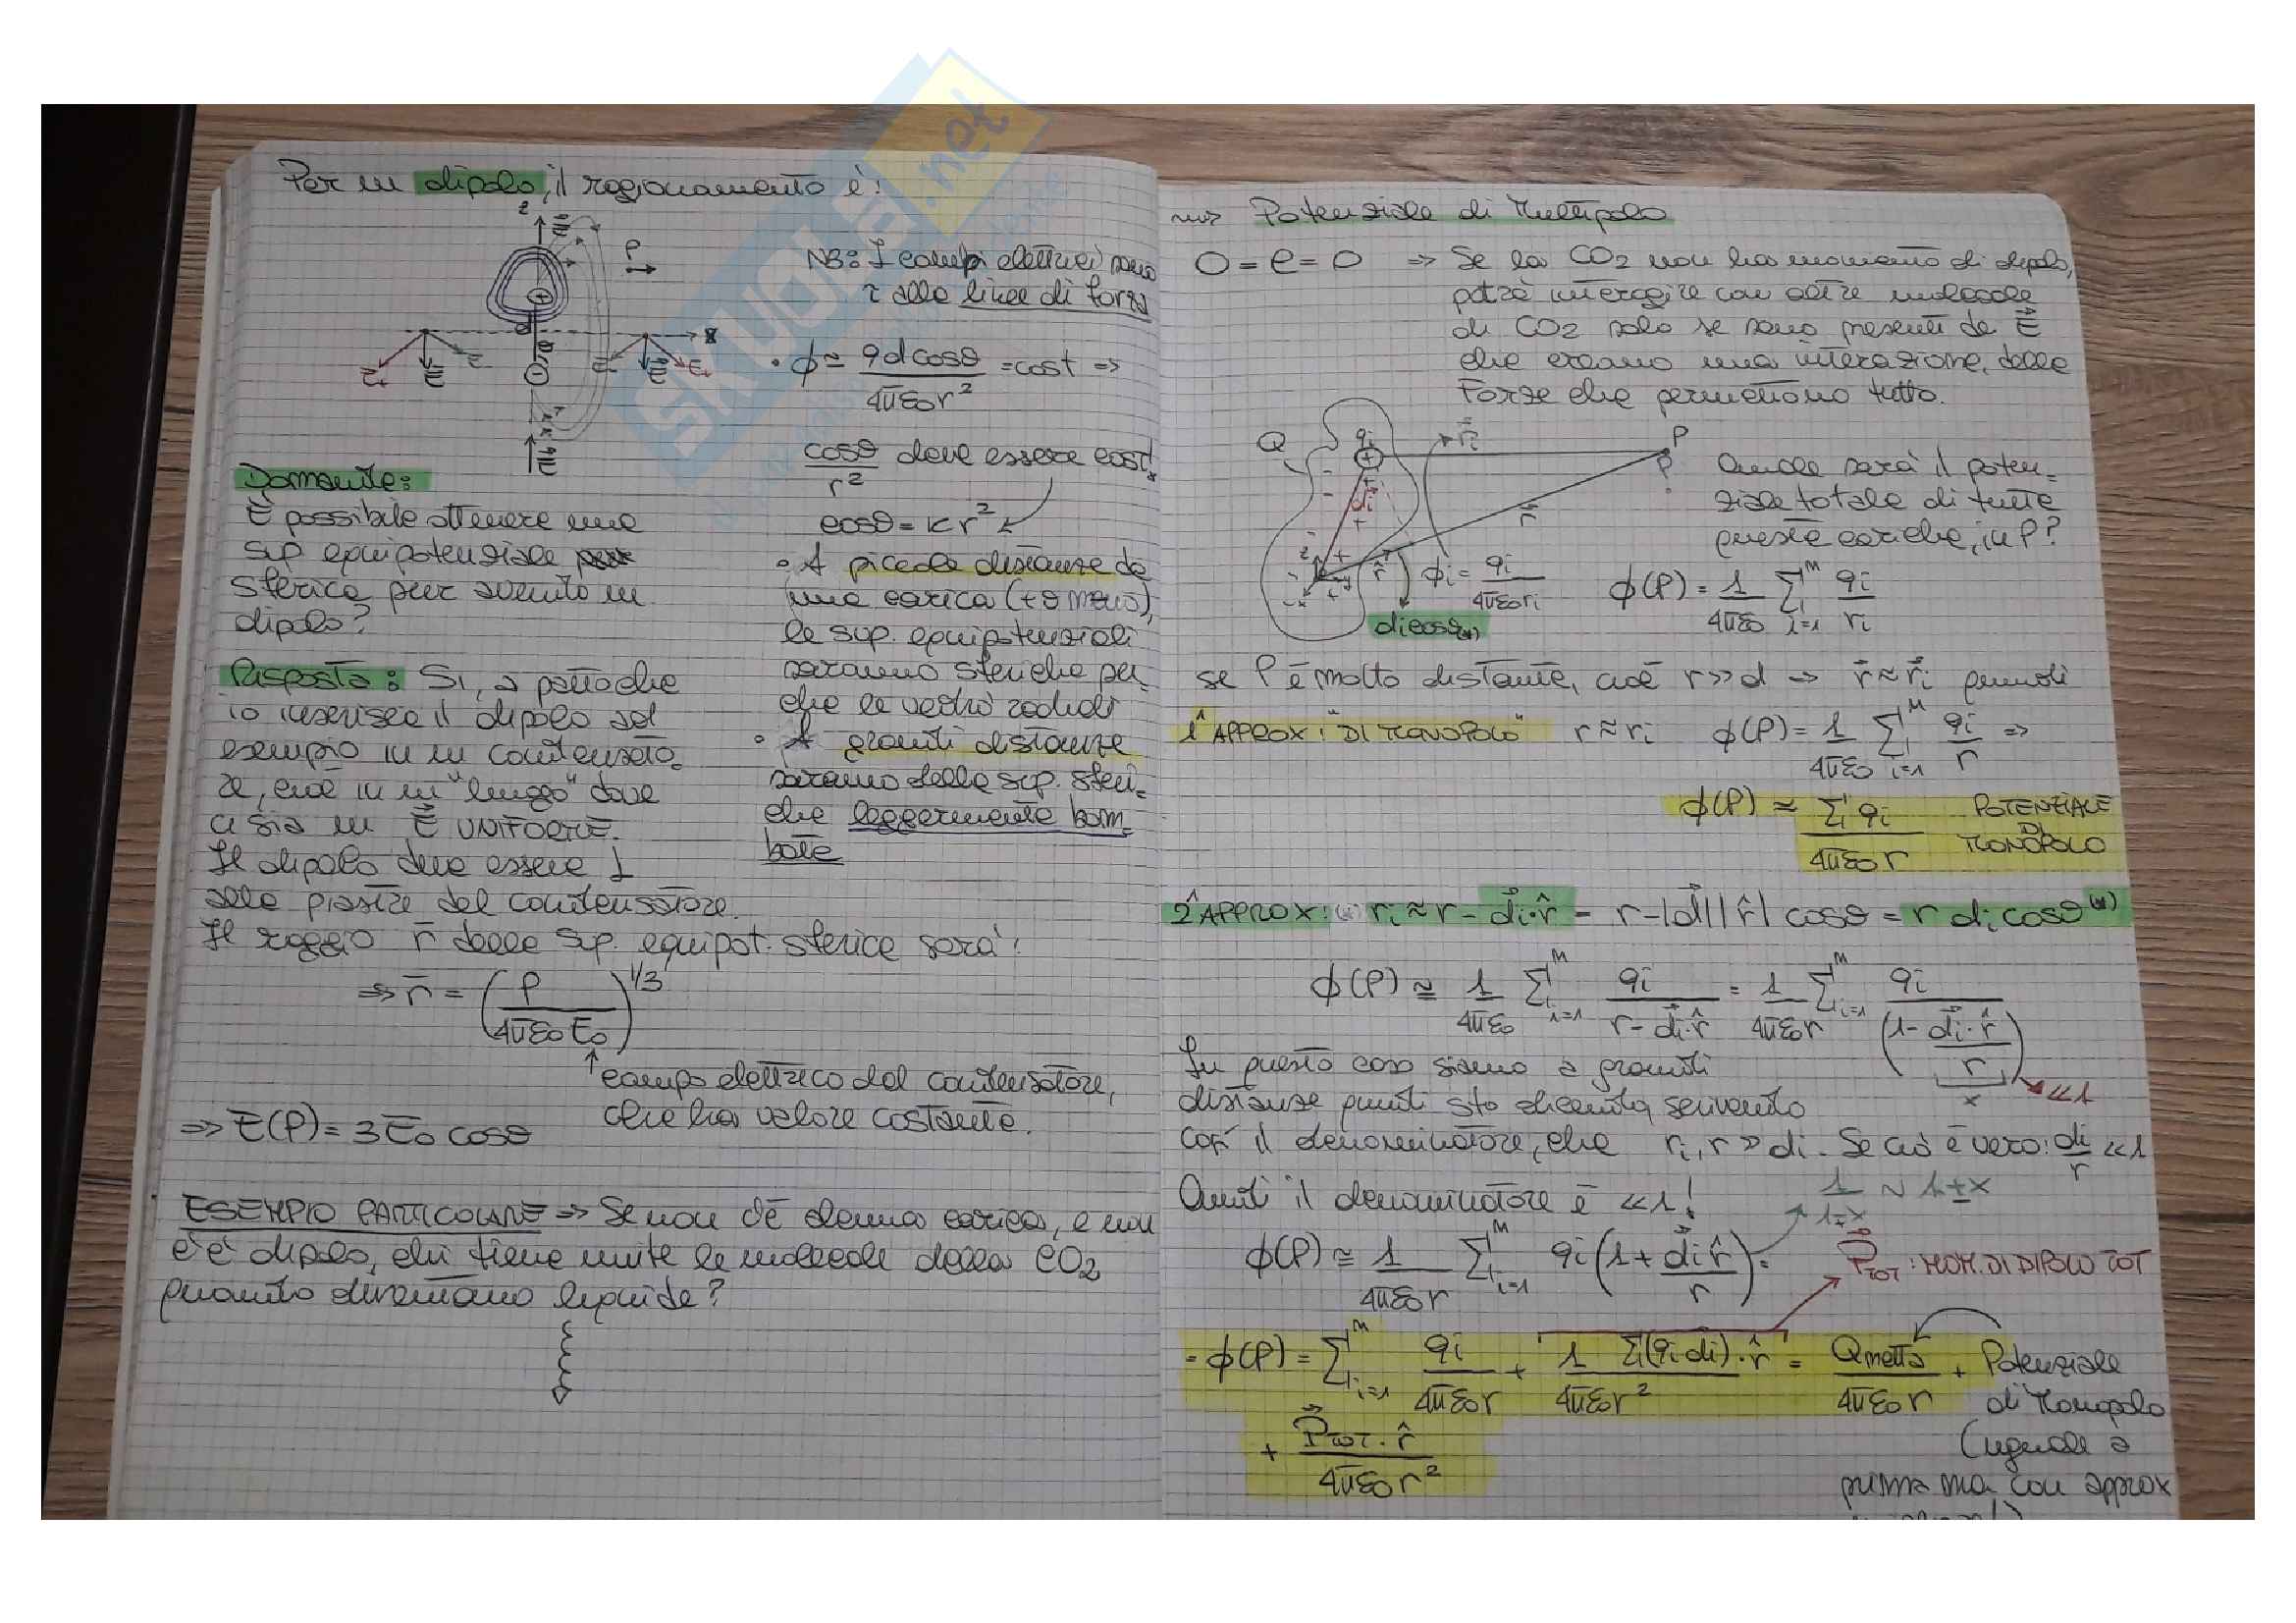 Per un dipolo, il ragionamento è:
z
E
P
NB: I campi elettrici sono
τ alle linee di forza
d
x
E+
E
E-
E-
E
E+
θ
• ϕ ≈ qdcosθ / 4πε0r² = cost ⇒
cosθ / r² deve essere cost.
cosθ = Kr²
• A piccole distanze da
una carica (+ o meno),
le sup. equipotenziali
saranno sferiche per-
che le vedrò radiali
• A grandi distanze
saranno delle sup. sferi-
che leggermente bom-
bate
Domanda:
È possibile ottenere una
sup equipotenziale
sferica pur avendo un
dipolo?
Risposta: Sì, a patto che
io inserisca il dipolo ad
esempio in un condensato-
re, cioè in un "luogo" dove
ci sia un E UNIFORME.
Il dipolo deve essere ⊥
alle piastre del condensatore.
Il raggio r delle sup. equipot. sferica sarà:
⇒ r = (P / 4πε0E0)^1/3
campo elettrico del condensatore,
che ha valore costante.
⇒ E(P) = 3E0 cosθ
ESEMPIO PARTICOLARE ⇒ Se non c'è alcuna carica, e non
c'è dipolo, chi tiene unite le molecole della CO2
quando diventano liquide?
⇒ Potenziale di Multipolo
O = C = O ⇒ Se la CO2 non ha momento di dipolo,
potrà interagire con altre molecole
di CO2 solo se sono presenti de E
che creano una interazione, delle
Forze che permettono tutto.
Q
qi
ri
P
di
r
r̂
Quale sarà il poten-
ziale totale di tutte
queste cariche, in P?
ϕi = qi / 4πε0ri
ϕ(P) = 1/4πε0 Σ i=1 M qi/ri
dicosθ(*)
se P è molto distante, cioè r>>d ⇒ r ≈ ri quindi
1ª APPROX: "DI MONOPOLO" r ≈ ri ϕ(P) = 1/4πε0 Σ i=1 M qi/r ⇒
ϕ(P) ≈ Σ qi / 4πε0r POTENZIALE DI MONOPOLO
2ª APPROX: (*) ri ≈ r - di·r̂ = r - |d||r̂| cosθ = r di cosθ (*)
ϕ(P) ≅ 1/4πε0 Σ i=1 M qi / r - di·r̂ = 1/4πε0r Σ i=1 M qi / (1 - di·r̂/r)
x <<1
In questo caso siamo a grandi
distanze quindi sto dicendo, scrivendo
così il denominatore, che ri, r >> di. Se ciò è vero: di/r <<1
Quindi il denominatore è <<1!
1/1∓x ~ 1±x
ϕ(P) ≅ 1/4πε0r Σ i=1 M qi (1 + di·r̂/r) =
PTOT: MOM. DI DIPOLO TOT
= ϕ(P) = Σ i=1 M qi/4πε0r + 1 Σ(qi di)·r̂ / 4πε0r² = Qnetta/4πε0r +
+ PTOT·r̂ / 4πε0r²
Potenziale
di Monopolo
(uguale a
prima ma con approx